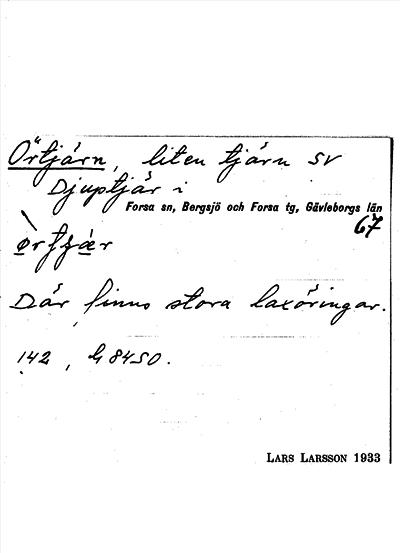 Örtjärn, liten tjärn SV
Djuptjär i
Forsa sn, Bergsjö och Forsa tg, Gävleborgs län
67
Där finns stora laxöringar.
142, h 8450.
LARS LARSSON 1933